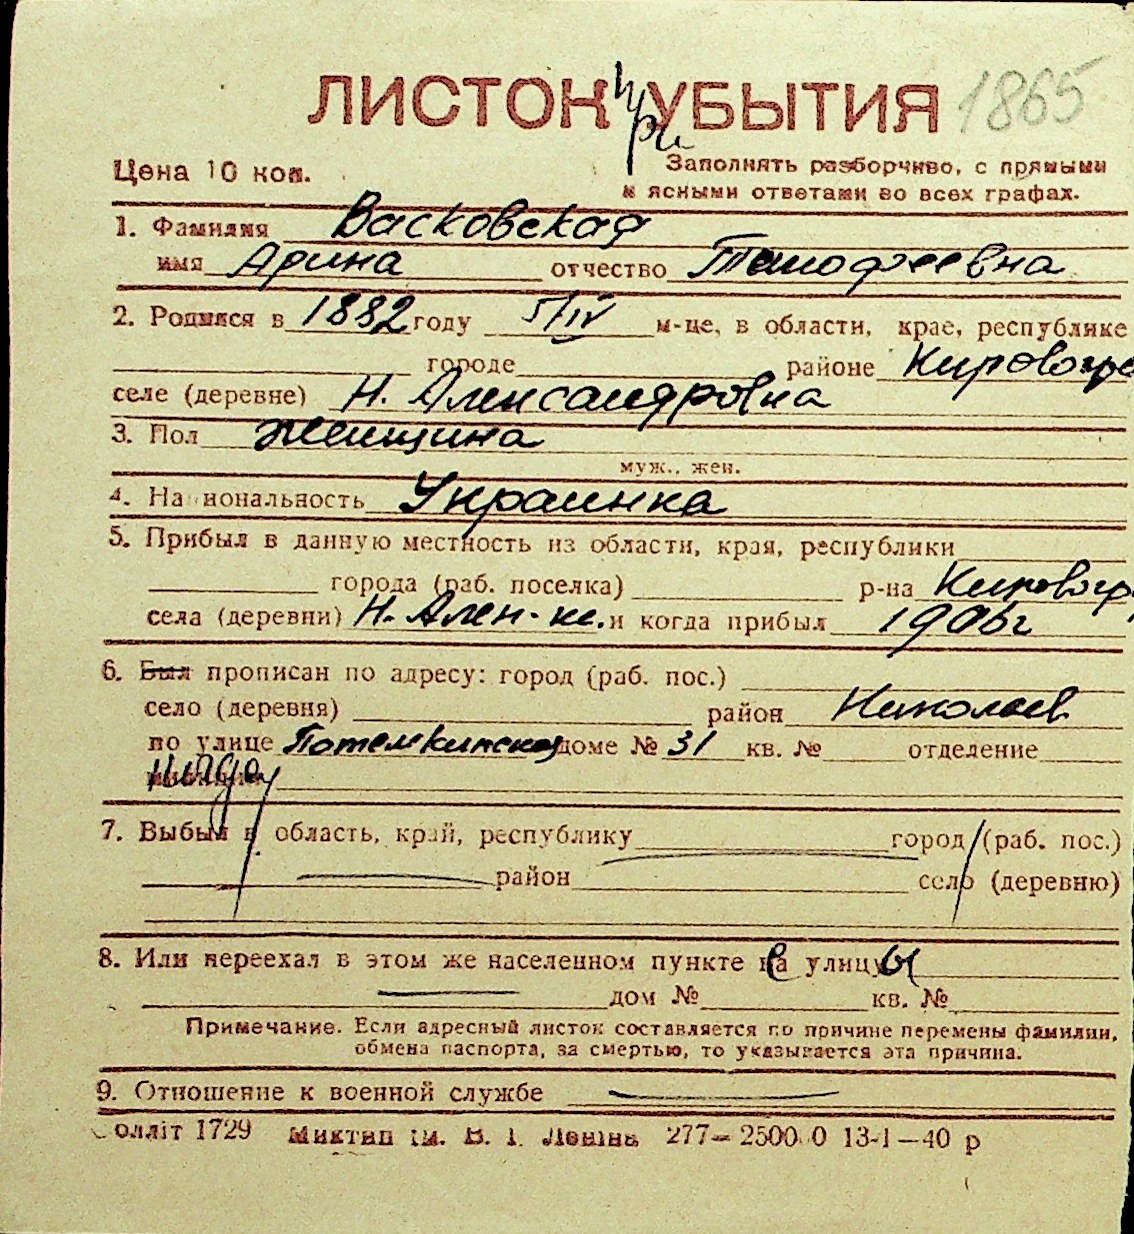 ЛИСТОК при УБЫТИЯ 1865
Цена 10 коп.
Заполнять разборчиво, с прямыми
и ясными ответами во всех графах.
1. Фамилия Васковская
имя Арина отчество Тимофеевна
2. Родился в 1882 году 5/IV м-це, в области, крае, республике
городе районе Кировогра
селе (деревне) Н. Александровка
3. Пол Женщина
муж., жен.
4. Национальность Украинка
5. Прибыл в данную местность из области, края, республики
города (раб. поселка) р-на Кировогр
села (деревни) Н. Алек- и когда прибыл 1906г
6. Был прописан по адресу: город (раб. пос.)
село (деревня) район Николаев
по улице Потемкинской доме № 31 кв. № отделение
милиции
7. Выбыл в область, край, республику город (раб. пос.)
район село (деревню)
8. Или переехал в этом же населенном пункте с улицы
дом № кв. №
Примечание. Если адресный листок составляется по причине перемены фамилии,
обмена паспорта, за смертью, то указывается эта причина.
9. Отношение к военной службе
олліт 1729 ім. В. І. Леніна 277—2500 0 13-I—40 р